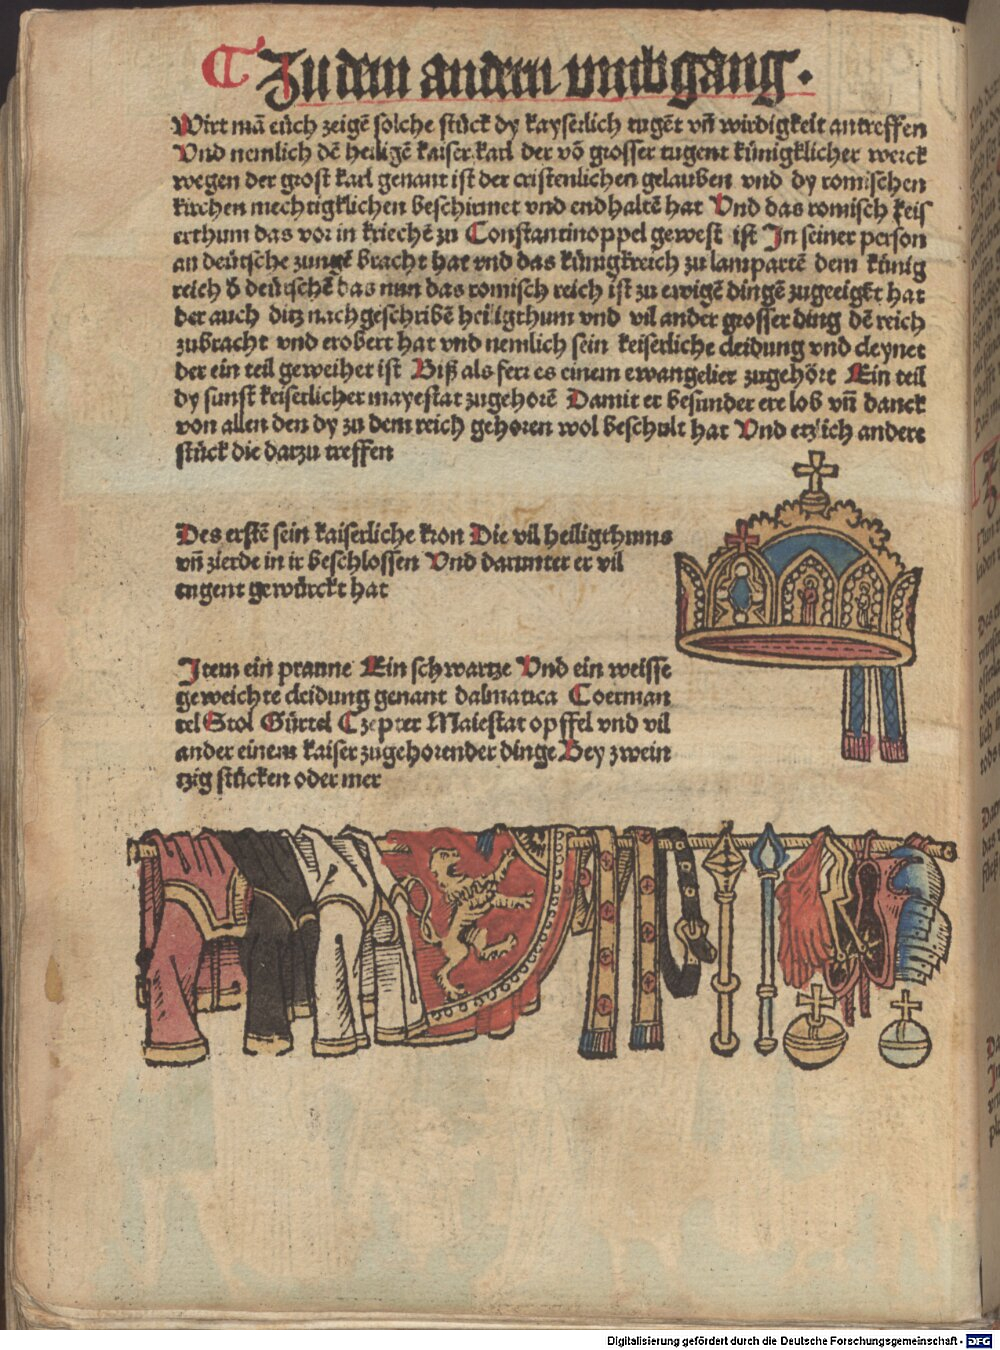 Zu dem andern vmbgang.
Wirt mā eüch zeigē solche stück dy kayserlich tugēt vn̄ wirdigkeit antreffen
Vnd nemlich dē heiligē kaiser karl der vō grosser tugent künigklicher werck
wegen der grost karl genant ist der cristenlichen gelauben vnd dy romischen
kirchen mechtigklichen beschirmet vnd endhaltē hat Vnd das romisch keis
erthum das vor in kriechē zu Constantinoppel gewest ist In seiner person
an deütsche zungē bracht hat vnd das künigkreich zu lampartē dem künig
reich d̕ deütschē das nun das romisch reich ist zu ewigē dingē zugeeigēt hat
der auch ditz nachgeschribē heiligthum vnd vil ander grosser ding dē reich
zubracht vnd erobert hat vnd nemlich sein keiserliche cleidung vnd cleynet
der ein teil geweihet ist Biß als ferr es einem ewangelier zugehöre Ein teil
dy sunst keiserlicher mayestat zugehorē Damit er besunder ere lob vn̄ danck
von allen den dy zu dem reich gehoren wol beschult hat Vnd etzlich andere
stück die darzu treffen
Des erstē sein kaiserliche kron Die vil heiligthums
vn̄ zierde in ir beschlossen Vnd darunter er vil
tugent gewürckt hat
Item ein pranne Ein schwartze Vnd ein weisse
geweichte cleidung genant dalmatica Coerman
tel Stol Gürtel Czepter Maiestat opffel vnd vil
ander einem kaiser zugehorender dinge Bey zwein
tzig stücken oder mer
Digitalisierung gefördert durch die Deutsche Forschungsgemeinschaft - DFG